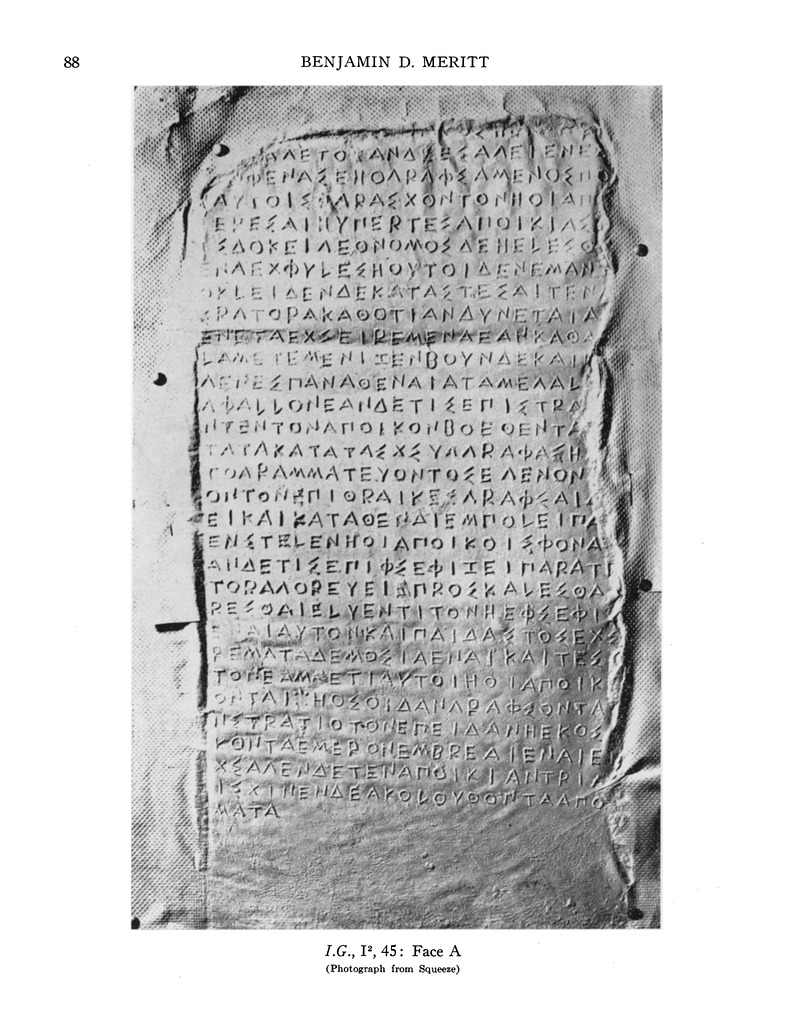 88
BENJAMIN D. MERITT
ΑΓΕΤΟΕΑΝΔΕΕΣΑΓΕΙΕΝΕ
ΦΕΝΑΣΕΗΟΓΡΑΦΣΑΜΕΝΟΣΠΟ
ΑΥΤΟΙΣΠΑΡΑΣΧΟΝΤΟΝΗΟΙΑΠ
ΕΡΕΣΑΙΗΥΠΕΡΤΕΣΑΠΟΙΚΙΑΣ
ΣΔΟΚΕΙΓΕΟΝΟΜΟΣΔΕΗΕΛΕΣΘ
ΕΝΑΕΧΦΥΛΕΣΗΟΥΤΟΙΔΕΝΕΜΑΝ
ΟΚΛΕΙΔΕΝΔΕΚΑΤΑΣΤΕΣΑΙΤΕΝ
ΚΡΑΤΟΡΑΚΑΘΟΤΙΑΝΔΥΝΕΤΑΙΑ
ΕΝΕΤΑΕΧΣΕΙΡΕΜΕΝΑΕΑΝΚΑΘΑ
ΛΑΜΕΤΕΜΕΝΙΖΕΝΒΟΥΝΔΕΚΑΙΠ
ΑΓΕΝΕΣΠΑΝΑΘΕΝΑΙΑΤΑΜΕΓΑΛ
ΑΦΑΛΛΟΝΕΑΝΔΕΤΙΣΕΠΙΣΤΡΑ
ΝΤΕΝΤΟΝΑΠΟΙΚΟΝΒΟΕΘΕΝΤΑ
ΤΑΤΑΚΑΤΑΤΑΣΧΣΥΓΓΡΑΦΑΣΗ
ΤΟΓΡΑΜΜΑΤΕΥΟΝΤΟΣΕΓΕΝΟΝ
ΟΝΤΟΝΕΠΙΘΡΑΙΚΕΣΓΡΑΦΣΑΙΔ
ΕΙΚΑΙΚΑΤΑΘΕΝΑΙΕΜΠΟΛΕΙΠΑ
ΕΝΣΤΕΛΕΝΗΟΙΑΠΟΙΚΟΙΣΦΟΝΑ
ΑΝΔΕΤΙΣΕΠΙΦΣΕΦΙΖΕΙΠΑΡΑΤΕ
ΤΟΡΑΓΟΡΕΥΕΙΕΠΡΟΣΚΑΛΕΣΘΑ
ΡΕΣΘΑΙΕΛΥΕΝΤΙΤΟΝΗΕΦΣΕΦΙ
ΕΝΑΙΑΥΤΟΝΚΑΙΠΑΙΔΑΣΤΟΣΕΧΣ
ΡΕΜΑΤΑΔΕΜΟΣΙΑΕΝΑΙΚΑΙΤΕΣ
ΤΟΝΕΑΜΜΕΤΙΑΥΤΟΙΗΟΙΑΠΟΙΚ
ΟΝΤΑΙΗΟΣΟΙΔΑΝΓΡΑΦΣΟΝΤΑ
ΝΣΤΡΑΤΙΟΤΟΝΕΠΕΙΔΑΝΗΕΚΟΣ
ΚΟΝΤΑΕΜΕΡΟΝΕΜΒΡΕΑΙΕΝΑΙΕ
ΧΣΑΓΕΝΔΕΤΕΝΑΠΟΙΚΙΑΝΤΡΙΑ
ΙΣΧΙΝΕΝΔΕΑΚΟΛΟΥΘΟΝΤΑΑΠΟ
ΜΑΤΑ
I.G., I², 45: Face A
(Photograph from Squeeze)